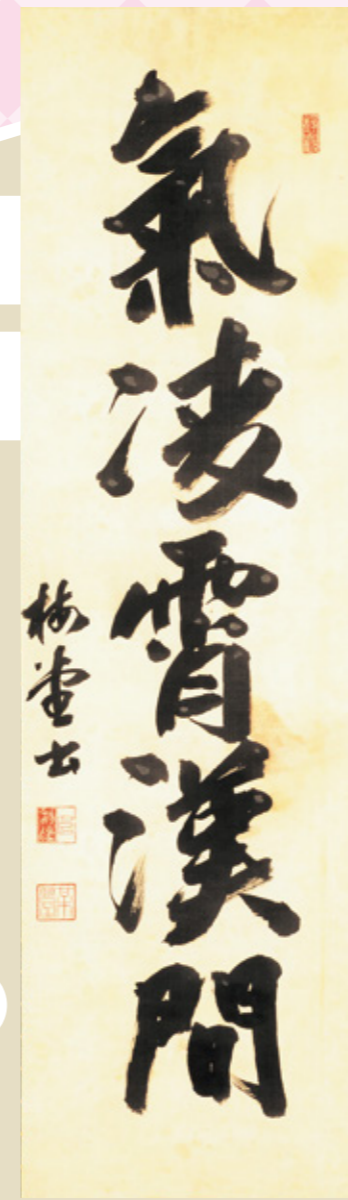 氣凌霄漢間
堂書